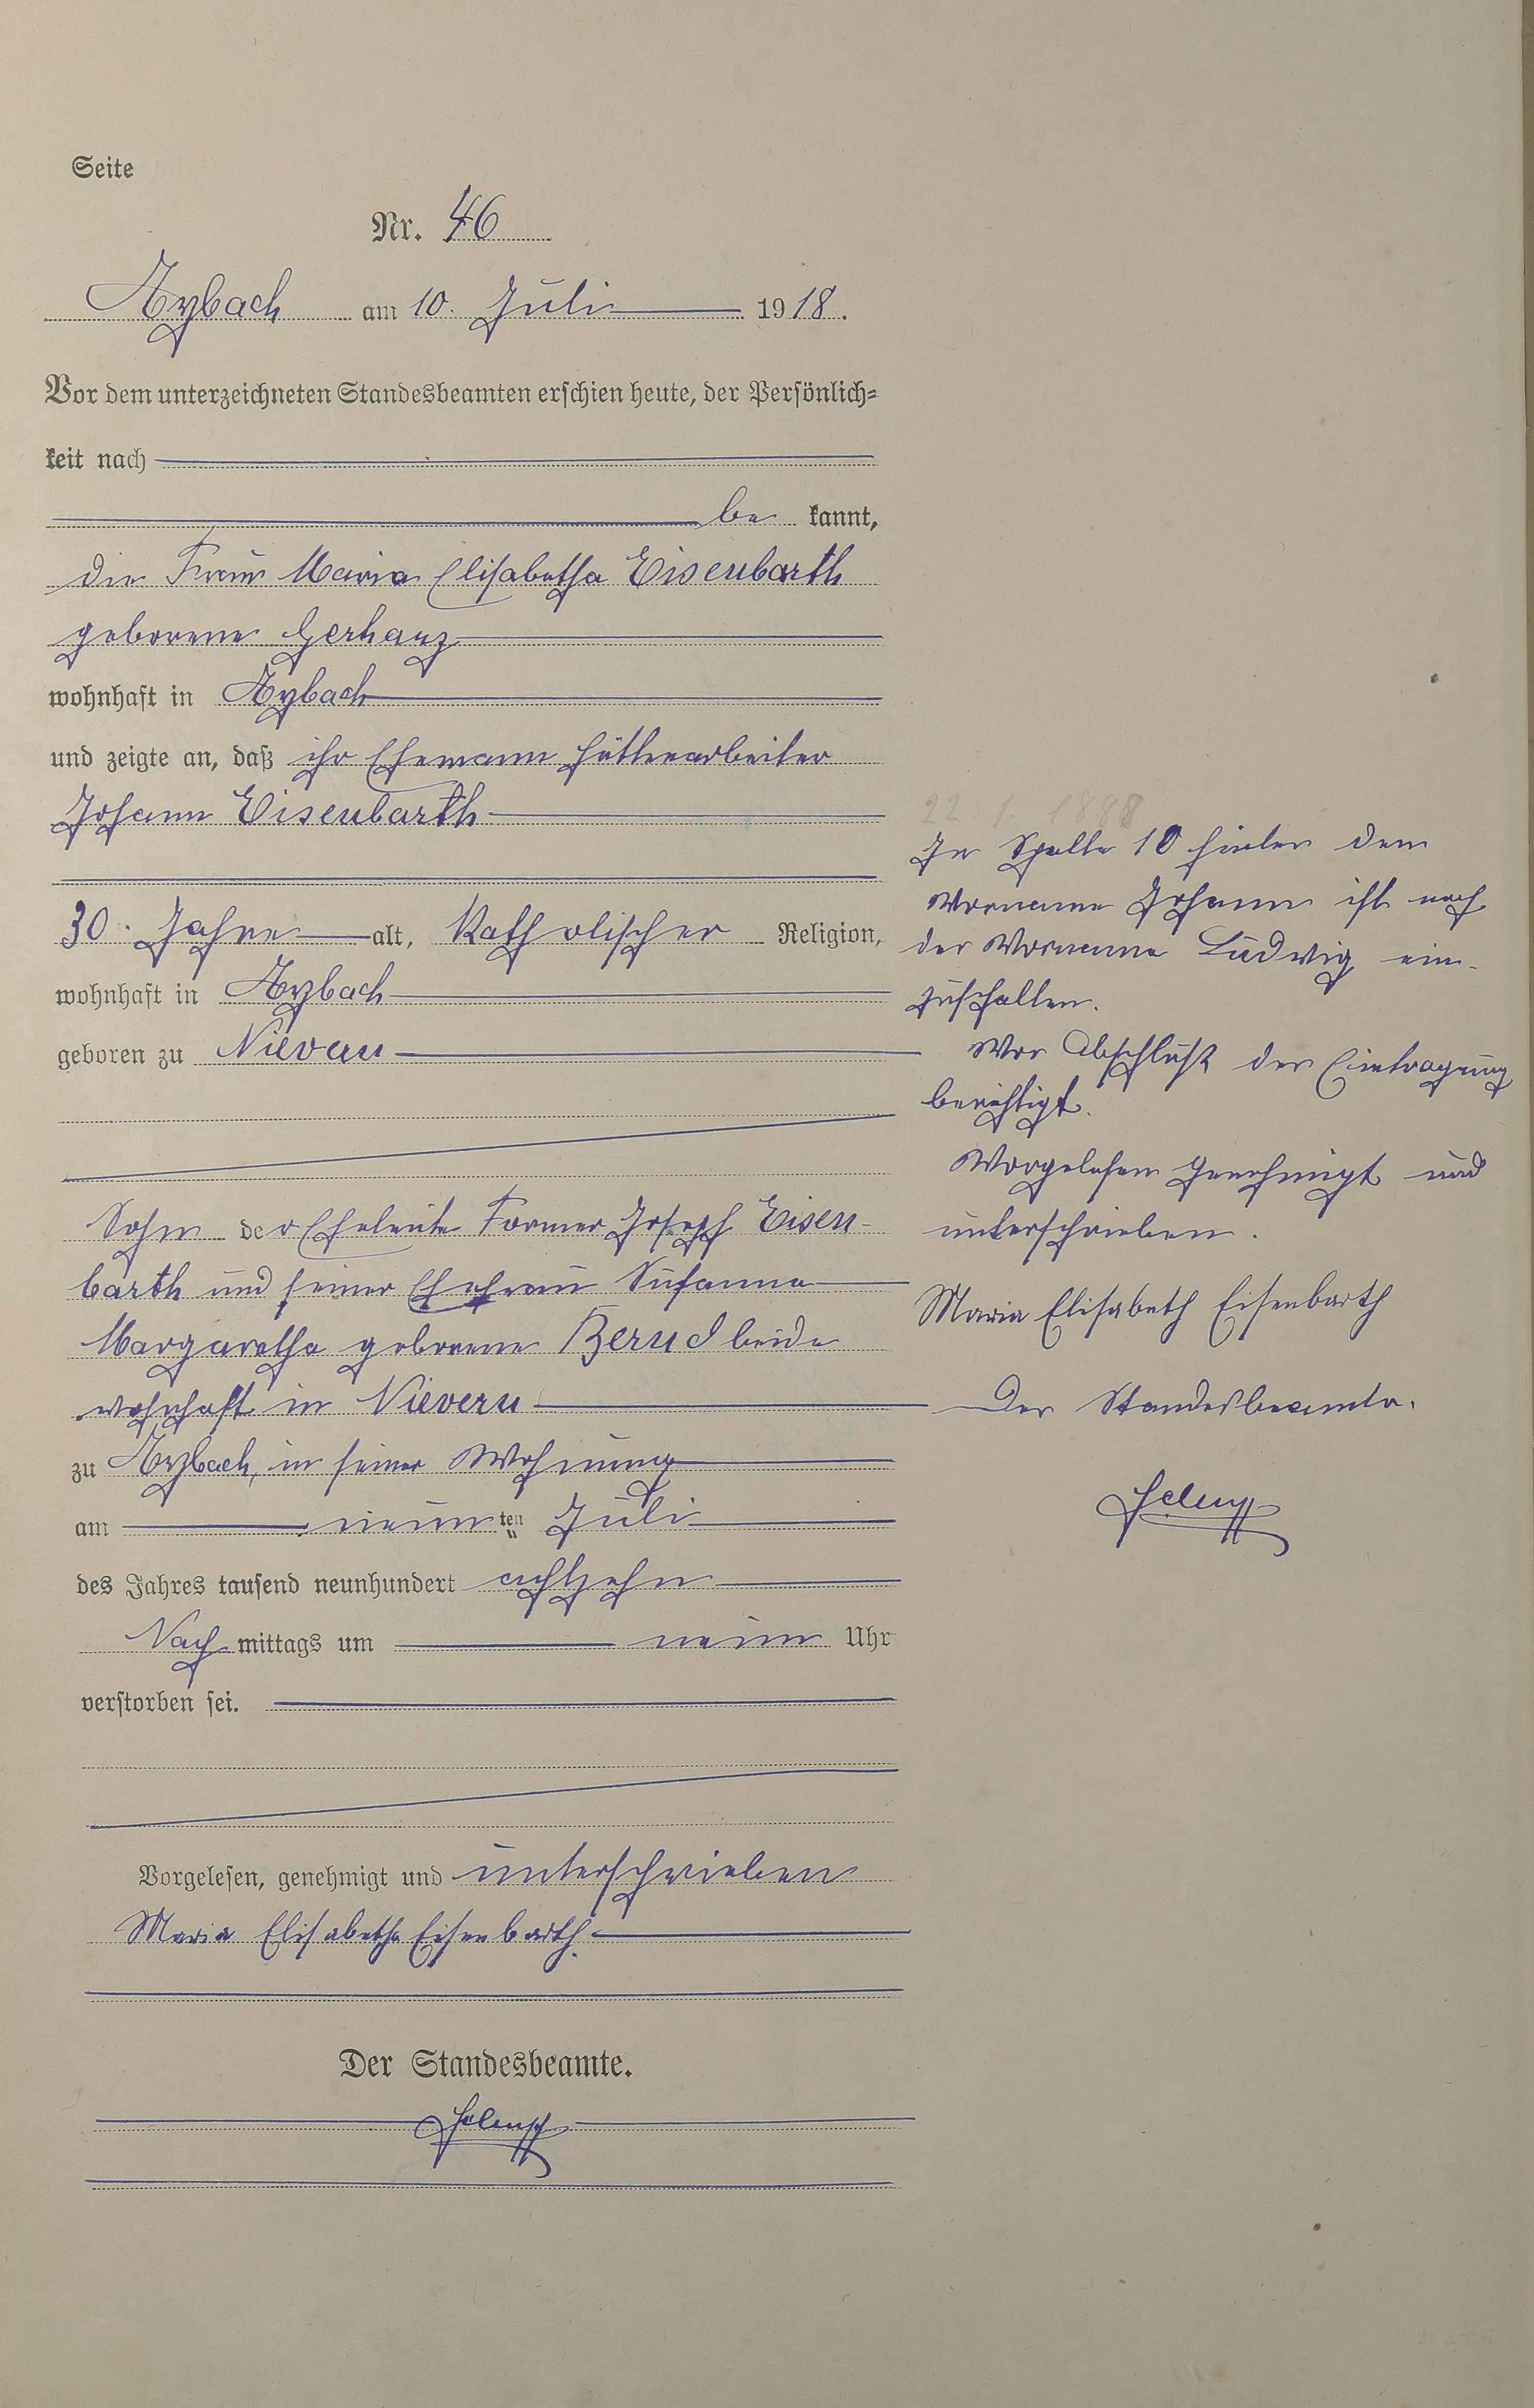 Seite
Nr. 46
Arzbach am 10. Juli 1918.
Vor dem unterzeichneten Standesbeamten erschien heute, der Persönlich=
keit nach
be kannt,
die Frau Maria Elisabetha Eisenbarth
geborene Gerhanz
wohnhaft in Arzbach
und zeigte an, daß ihr Ehemann Hüttenarbeiter
Johann Eisenbarth
30. Jahre alt, Katholischer Religion,
wohnhaft in Arzbach
geboren zu Nievern
Sohn der Eheleute Former Joseph Eisen-
barth und seiner Ehefrau Susanna
Margaretha geborene Bernd beide
wohnhaft in Nievern
zu Arzbach, in seiner Wohnung
am neun ten Juli
des Jahres tausend neunhundert achtzehn
Nach mittags um neun Uhr
verstorben sei.
Vorgelesen, genehmigt und unterschrieben
Maria Elisabetha Eisenbarth.
Der Standesbeamte.
22 1. 1888
In Spalte 10 hinter dem
Vorname Johann ist noch
der Vorname Ludwig ein-
zuschalten.
Vor Abschluß der Eintragung
berichtigt.
Vorgelesen genehmigt und
unterschrieben.
Maria Elisabeth Eisenbarth
Der Standesbeamte.